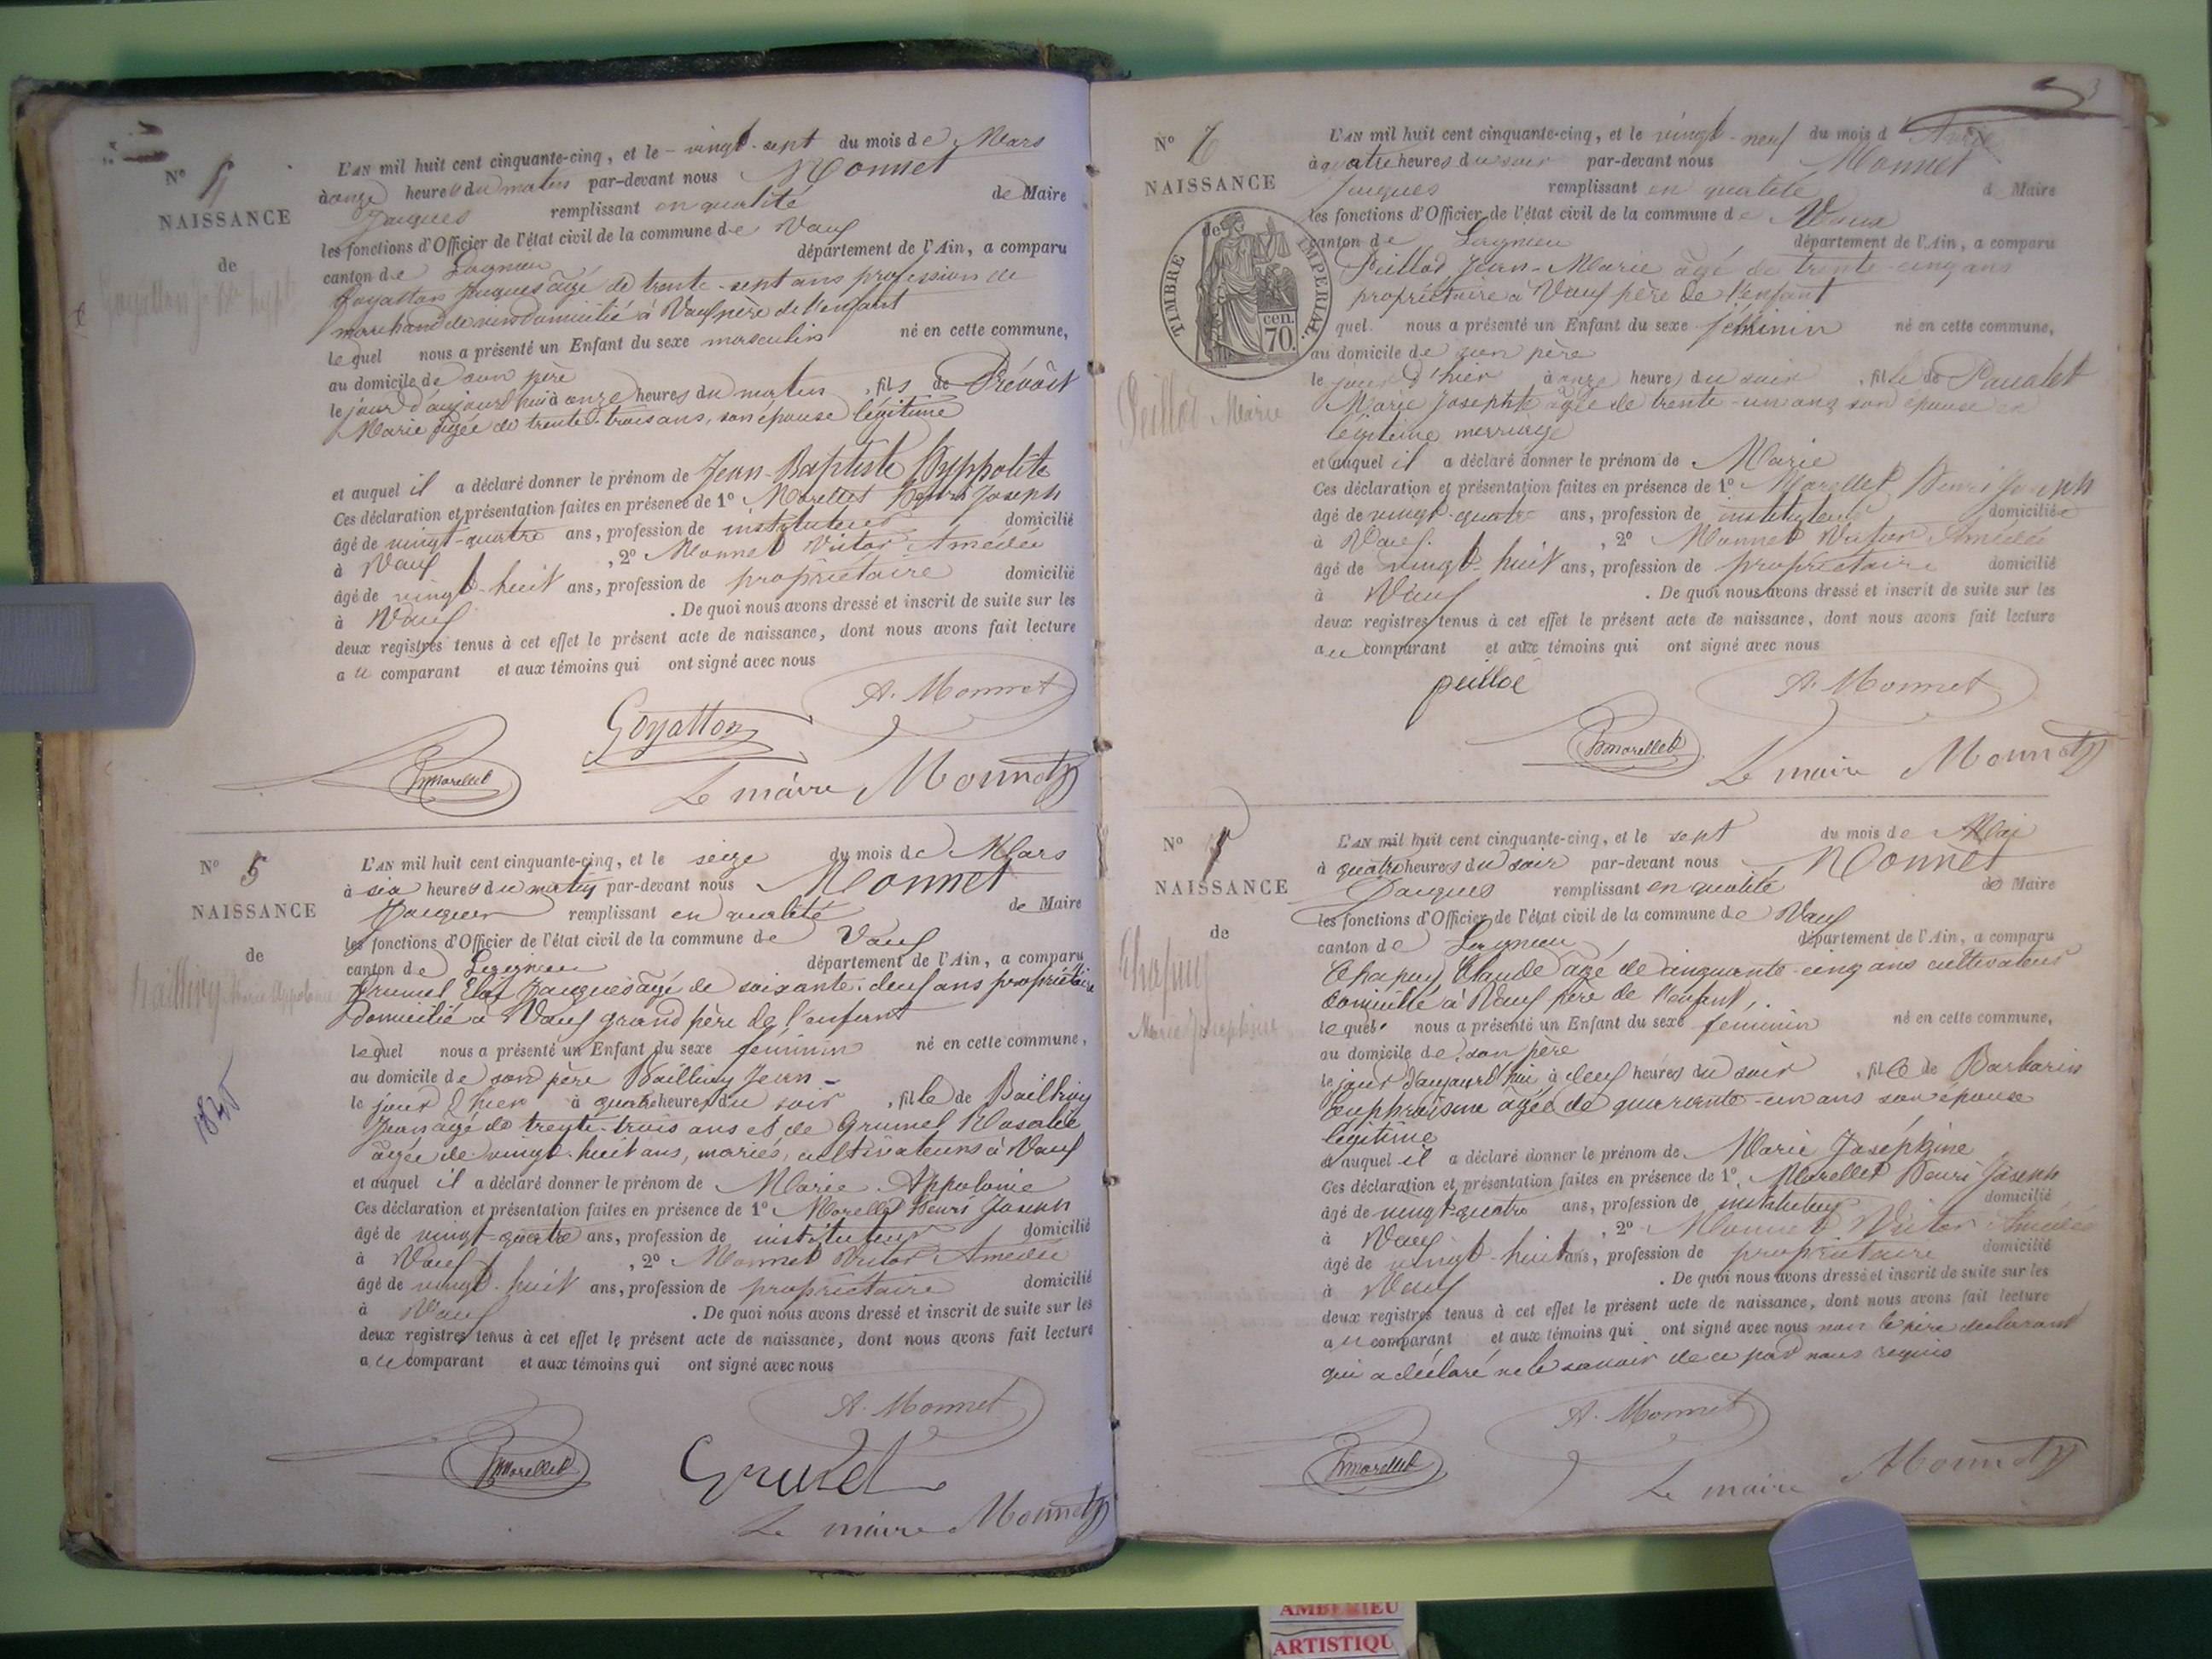 N° 4
NAISSANCE
de
Goyatton J. Bte hypt
L'AN mil huit cent cinquante-cinq, et le vingt-sept du mois de Mars
à onze heures du matin par-devant nous Monnet
Jacques remplissant en qualité de Maire
les fonctions d'Officier de l'état civil de la commune de Vaux
canton de Lagnieu département de l'Ain, a comparu
Goyatton Jacques âgé de trente-sept ans profession de
marchand de vins domicilié à Vaux père de l'enfant
lequel nous a présenté un Enfant du sexe masculin né en cette commune,
au domicile de son père
le jour d'aujourd'hui à onze heures du matin, fils de Prévôst
Marie âgée de trente-trois ans, son épouse légitime
et auquel il a déclaré donner le prénom de Jean-Baptiste Hyppolite
Ces déclaration et présentation faites en présence de 1° Morellet Henri Joseph
âgé de vingt-quatre ans, profession de instituteur domicilié
à Vaux, 2° Monnet Victor Amédée
âgé de vingt-huit ans, profession de propriétaire domicilié
à Vaux. De quoi nous avons dressé et inscrit de suite sur les
deux registres tenus à cet effet le présent acte de naissance, dont nous avons fait lecture
au comparant et aux témoins qui ont signé avec nous
A. Monnet
Goyatton
hmorellet
Le maire Monnet
N° 5
NAISSANCE
de
Baillivy Marie Appolonie
1845
L'AN mil huit cent cinquante-cinq, et le seize du mois de Mars
à six heures du matin par-devant nous Monnet
Jacques remplissant en qualité de Maire
les fonctions d'Officier de l'état civil de la commune de Vaux
canton de Lagnieu département de l'Ain, a comparu
Grumel Jacques âgé de soixante-deux ans propriétaire
domicilié à Vaux grand père de l'enfant
lequel nous a présenté un Enfant du sexe féminin né en cette commune,
au domicile de son père Baillivy Jean
le jour d'hier à quatre heures du soir, fille de Baillivy
Jean âgé de trente-trois ans et de Grumel Rosalie
âgée de vingt-huit ans, mariés, cultivateurs à Vaux
et auquel il a déclaré donner le prénom de Marie Appolonie
Ces déclaration et présentation faites en présence de 1° Morellet Henri Joseph
âgé de vingt-quatre ans, profession de instituteur domicilié
à Vaux, 2° Monnet Victor Amédée
âgé de vingt-huit ans, profession de propriétaire domicilié
à Vaux. De quoi nous avons dressé et inscrit de suite sur les
deux registres tenus à cet effet le présent acte de naissance, dont nous avons fait lecture
au comparant et aux témoins qui ont signé avec nous
A. Monnet
hmorellet
Le maire Monnet
3
N° 6
NAISSANCE
de
TIMBRE IMPERIAL.
70. cen.
Peillod Marie
L'AN mil huit cent cinquante-cinq, et le vingt-neuf du mois d'Avril
à quatre heures du soir par-devant nous Monnet
Jacques remplissant en qualité d Maire
les fonctions d'Officier de l'état civil de la commune de Vaux
canton de Lagnieu département de l'Ain, a comparu
Peillod Jean-Marie âgé de trente-cinq ans
propriétaire à Vaux père de l'enfant
quel nous a présenté un Enfant du sexe féminin né en cette commune,
au domicile de son père
le jour d'hier à onze heures du soir, fille de
Marie Josephte âgée de trente-un ans son épouse en
légitime marriage
et auquel il a déclaré donner le prénom de Marie
Ces déclaration et présentation faites en présence de 1° Morellet Henri Joseph
âgé de vingt-quatre ans, profession de instituteur domicilié
à Vaux, 2° Monnet Victor Amédée
âgé de vingt-huit ans, profession de propriétaire domicilié
à Vaux. De quoi nous avons dressé et inscrit de suite sur les
deux registres tenus à cet effet le présent acte de naissance, dont nous avons fait lecture
au comparant et aux témoins qui ont signé avec nous
peillod
A. Monnet
hmorellet
Le maire Monnet
N° 7
NAISSANCE
de
Chapuy
Marie Joséphine
L'AN mil huit cent cinquante-cinq, et le sept du mois de Mai
à quatre heures du soir par-devant nous Monnet
Jacques remplissant en qualité de Maire
les fonctions d'Officier de l'état civil de la commune de Vaux
canton de Lagnieu département de l'Ain, a comparu
Chapuy Claude âgé de cinquante-cinq ans cultivateur
domicilié à Vaux père de l'enfant,
lequel nous a présenté un Enfant du sexe féminin né en cette commune,
au domicile de son père
le jour d'aujourd'hui à deux heures du soir, fille de Barbarin
Euphroisine âgée de quarante-un ans son épouse
légitime
et auquel il a déclaré donner le prénom de Marie Joséphine
Ces déclaration et présentation faites en présence de 1° Morellet Henri Joseph
âgé de vingt-quatre ans, profession de instituteur domicilié
à Vaux, 2° Monnet Victor Amédée
âgé de vingt-huit ans, profession de propriétaire domicilié
à Vaux. De quoi nous avons dressé et inscrit de suite sur les
deux registres tenus à cet effet le présent acte de naissance, dont nous avons fait lecture
au comparant et aux témoins qui ont signé avec nous non le père déclarant
qui a déclaré ne le savoir de ce par nous requis
A. Monnet
hmorellet
Le maire Monnet
AMBERIEU
ARTISTIQU